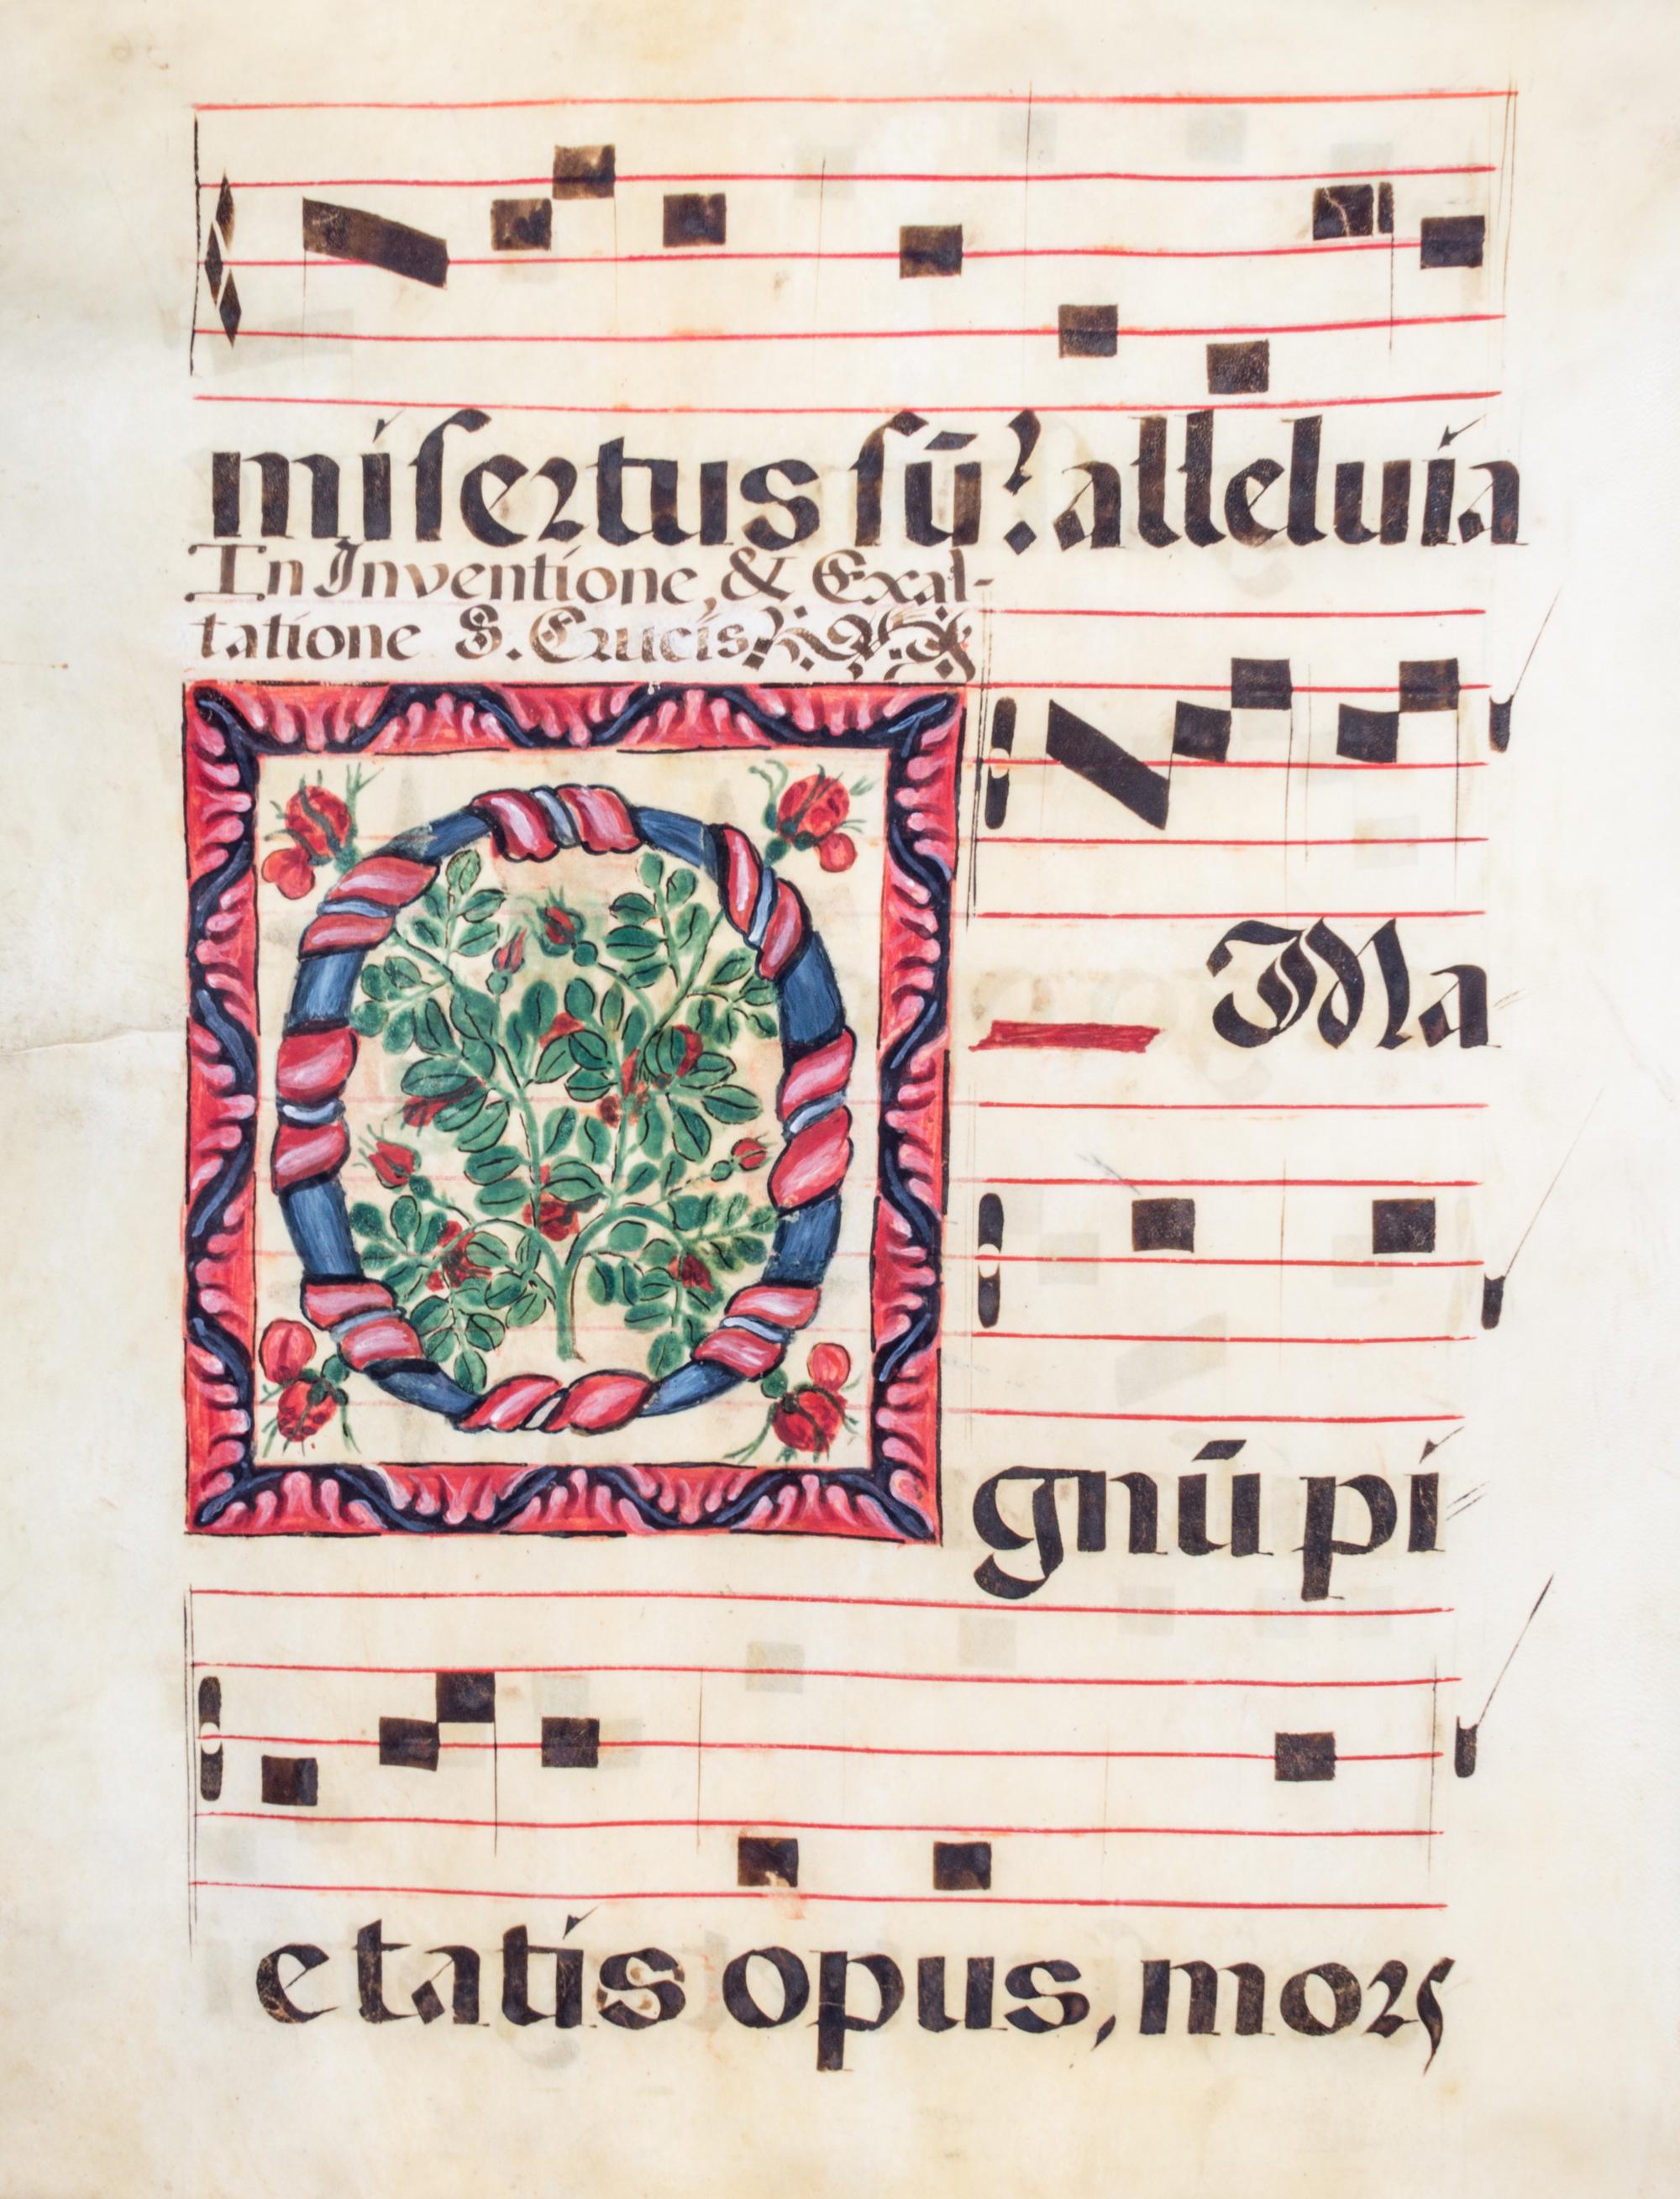 misertus sū? alleluia
In Inventione, & Exal-
tatione S. Crucis
O Ma
gnū pi
etatis opus, mors